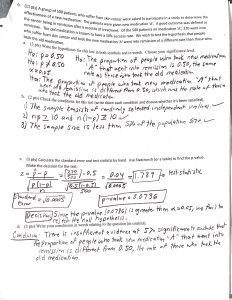 6. (15 pts) A group of 500 patients who suffer from skin cancer was asked to participate in a study to determine the
effectiveness of a new medication. The patients were given new medication "A". A good outcome was defined as
the cancer being in remission after 6 months of treatment. Of the 500 patients on medication "A", 270 went into
remission. The old medication is known to have a 50% success rate. We wish to test the hypothesis that people
who suffer from skin cancer and took the new medication "A" were in remission at a different rate than those who
took the old medication.
a. (5 pts) Write the hypothesis for this test in both symbols and in words. Choose your significance level.
Ho: p = 0.50
Ha: p ≠ 0.50
α = 0.05
Ho: The proportion of people who took new medication
"A" that went into remission is 0.50, the same
rate as those who took the old medication.
Ha: The proportion of people who took new medication "A" that
went into remission is different from 0.50, which was the rate of those
who took the old medication.
b. (3 pts) Check the conditions for this test (write down each condition) and discuss whether it has been satisfied.
1) The sample consists of randomly selected independent
2) np ≥ 10 and n(1-p) ≥ 10
3) The sample size is less than 5% of the population size
c. (5 pts) Calculate the standard error and test statistic by hand. Use Statcrunch for z tables to find the p-value.
Write the decision for the test.
z = p̂ - p / √(p(1-p)/n) = 270/500 - 0.5 / √(0.5(1-0.5)/500) = 0.04 / √0.0005 = 1.789 → test statistic
Standard Error = √0.0005
p-value = 0.0736
Decision: Since the p-value (0.0736) is greater than α = 0.05, we fail to
reject the null hypothesis.
d. (2 pts) Write your conclusion in words relating to the question in context.
Conclusion: There is insufficient evidence at 5% significance to conclude that
the proportion of people who took new medication "A" that went into
remission is different from 0.50, the rate of those who took the
old medication.